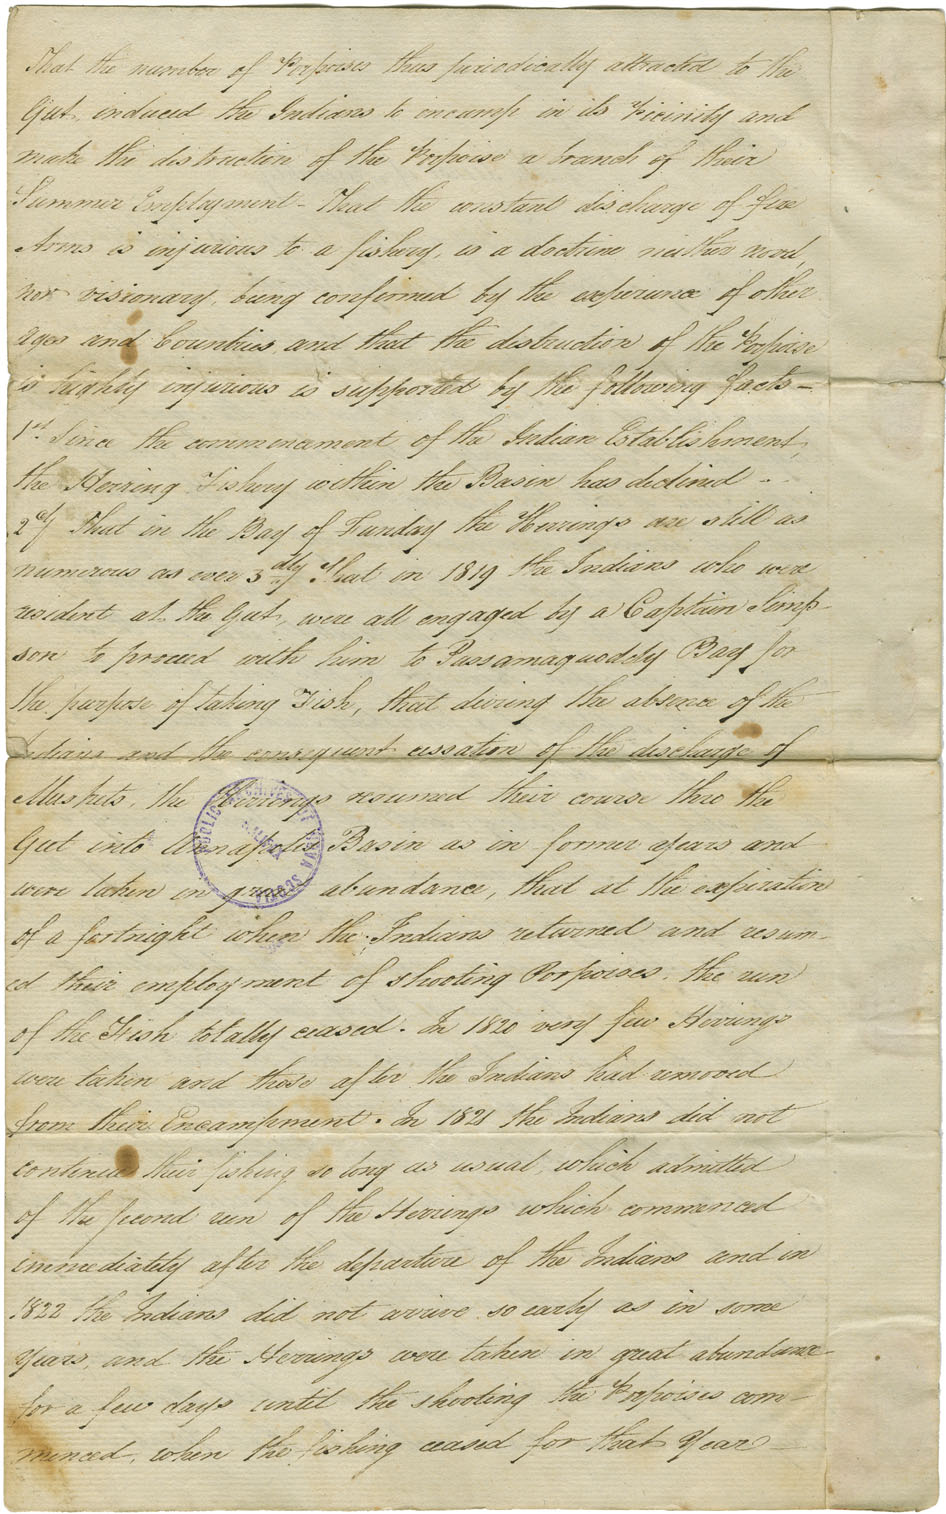 That the number of Porpoises thus periodically attracted to the
Gut, induced the Indians to encamp in its Vicinity and
make the distruction of the Porpoise a branch of their
Summer Employment - That the constant discharge of fire
Arms is injurious to a fishery, is a doctrine neither novel,
nor visionary, being confirmed by the experience of other
ages and Countries, and that the distruction of the Porpoise
is highly injurious is supported by the following facts -
1st. Since the commencement of the Indian Establishment,
the Herring Fishery within the Basin has declined -
2dly That in the Bay of Funday the Herrings are still as
numerous as ever 3dly That in 1819 the Indians who were
resident at the Gut, were all engaged by a Captain Simp-
son to proceed with him to Passamaquoddy Bay for
the purpose of taking Fish, that during the absence of the
Indians and the consequent cessation of the discharge of
Muskets, the Herrings resumed their course thro the
Gut into Annapolis Basin as in former years and
were taken in great abundance, that at the expiration
of a fortnight when the Indians returned and resum-
ed their employment of shooting Porpoises, the run
of the Fish totally ceased. In 1820 very few Herrings
were taken and those after the Indians had removed
from their Encampment. In 1821 the Indians did not
continue their fishing so long as usual, which admitted
of the second run of the Herrings which commenced
immediately after the departure of the Indians and in
1822 the Indians did not arrive so early as in some
Years, and the Herrings were taken in great abundance
for a few days until the shooting the Porpoises com-
menced, when the fishing ceased for that Year
PUBLIC ARCHIVES OF NOVA SCOTIA
HALIFAX